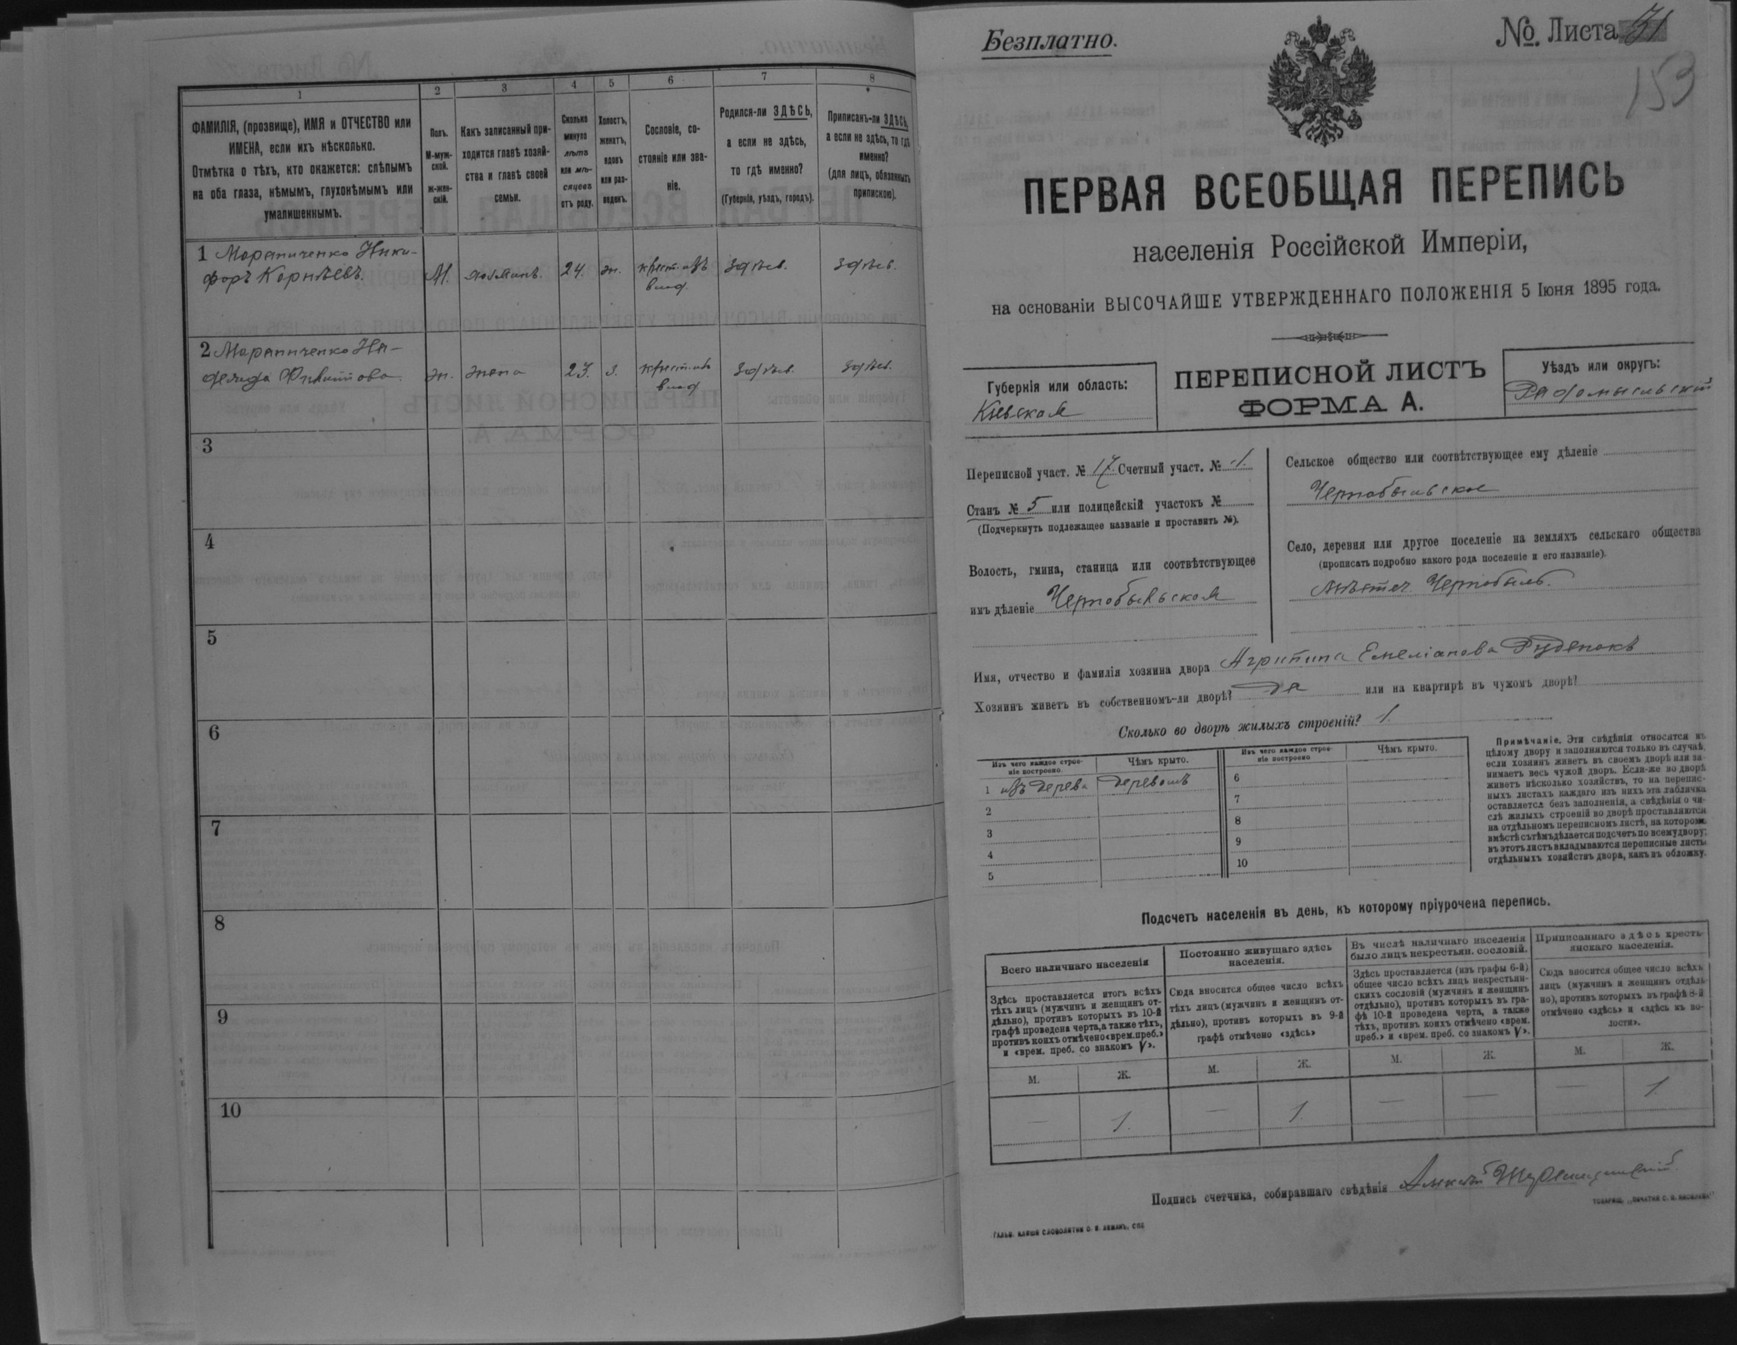 1
2
3
4
5
6
7
8
ФАМИЛІЯ, (прозвище), ИМЯ и ОТЧЕСТВО или
ИМЕНА, если ихъ нѣсколько.
Отмѣтка о тѣхъ, кто окажется: слѣпымъ
на оба глаза, нѣмымъ, глухонѣмымъ или
умалишеннымъ.
Полъ.
М-муж-
ской.
ж-жен-
скій.
Какъ записанный при-
ходится главѣ хозяй-
ства и главѣ своей
семьи.
Сколько
минуло
лѣтъ
или мѣ-
сяцевъ
отъ роду.
Холостъ,
женатъ,
вдовъ
или раз-
веденъ.
Сословіе, со-
стояніе или зва-
ніе.
Родился-ли ЗДѢСЬ,
а если не здѣсь,
то гдѣ именно?
(Губернія, уѣздъ, городъ).
Приписанъ-ли ЗДѢСЬ,
а если не здѣсь, то гдѣ
именно?
(для лицъ, обязанныхъ
припискою).
1 Марытченко Ники-
форъ Корнѣевъ.
М.
24.
ж.
здѣсь.
здѣсь.
2 Марытченко На-
жена
23.
з.
здѣсь.
здѣсь.
3
4
5
6
7
8
9
10
Безплатно.
№ Листа 31
153
ПЕРВАЯ ВСЕОБЩАЯ ПЕРЕПИСЬ
населенія Россійской Имперіи,
на основаніи ВЫСОЧАЙШЕ УТВЕРЖДЕННАГО ПОЛОЖЕНІЯ 5 Іюня 1895 года.
Губернія или область:
Кіевская
ПЕРЕПИСНОЙ ЛИСТЪ
ФОРМА А.
Уѣздъ или округъ:
Радомысльскій
Переписной участ. № 17. Счетный участ. № 1.
Станъ № 5 или полицейскій участокъ №
(Подчеркнуть подлежащее названіе и проставить №).
Волость, гмина, станица или соотвѣтствующее
имъ дѣленіе Чернобыльская
Сельское общество или соотвѣтствующее ему дѣленіе
Чернобыльское
Село, деревня или другое поселеніе на земляхъ сельскаго общества
(прописать подробно какого рода поселеніе и его названіе).
Мѣстеч. Чернобыль.
Имя, отчество и фамилія хозяина двора Агрипина Емеліанова Руденокъ
Хозяинъ живетъ въ собственномъ-ли дворѣ? да или на квартирѣ въ чужомъ дворѣ?
Сколько во дворѣ жилыхъ строеній? 1.
Изъ чего каждое строе-
ніе построено.
Чѣмъ крыто.
Изъ чего каждое строе-
ніе построено
Чѣмъ крыто.
1 изъ дерева деревомъ
2
3
4
5
6
7
8
9
10
Примѣчаніе. Эти свѣдѣнія относятся къ
цѣлому двору и заполняются только въ случаѣ,
если хозяинъ живетъ въ своемъ дворѣ или за-
нимаетъ весь чужой дворъ. Если-же во дворѣ
живетъ нѣсколько хозяйствъ, то на перепис-
ныхъ листахъ каждаго изъ нихъ эта табличка
оставляется безъ заполненія, а свѣдѣнія о чи-
слѣ жилыхъ строеній во дворѣ проставляются
на отдѣльномъ переписномъ листѣ, на которомъ
вмѣстѣ съ тѣмъ дѣлается подсчетъ по всему двору;
въ этотъ листъ вкладываются переписные листы
отдѣльныхъ хозяйствъ двора, какъ въ обложку.
Подсчетъ населенія въ день, къ которому пріурочена перепись.
Всего наличнаго населенія
Постоянно живущаго здѣсь
населенія.
Въ числѣ наличнаго населенія
было лицъ некрестьян. сословій.
Приписаннаго здѣсь кресть-
янскаго населенія.
Здѣсь проставляется итогъ всѣхъ
тѣхъ лицъ (мужчинъ и женщинъ от-
дѣльно), противъ которыхъ въ 10-й
графѣ проведена черта, а также тѣхъ,
противъ коихъ отмѣчено «врем. преб.»
и «врем. преб. со знакомъ V».
Сюда вносится общее число всѣхъ
тѣхъ лицъ (мужчинъ и женщинъ от-
дѣльно), противъ которыхъ въ 9-й
графѣ отмѣчено «здѣсь»
Здѣсь проставляется (изъ графы 6-й)
общее число всѣхъ лицъ некрестьян-
скихъ сословій (мужчинъ и женщинъ
отдѣльно), противъ которыхъ въ гра-
фѣ 10-й проведена черта, а также
тѣхъ, противъ коихъ отмѣчено «врем.
преб.» и «врем. преб. со знакомъ V».
Сюда вносится общее число всѣхъ
лицъ (мужчинъ и женщинъ отдѣль-
но), противъ которыхъ въ графѣ 8-й
отмѣчено «здѣсь» и «здѣсь къ во-
лости».
М. Ж. М. Ж. М. Ж. М. Ж.
— 1. — 1 — — — 1
Подпись счетчика, собиравшаго свѣдѣнія